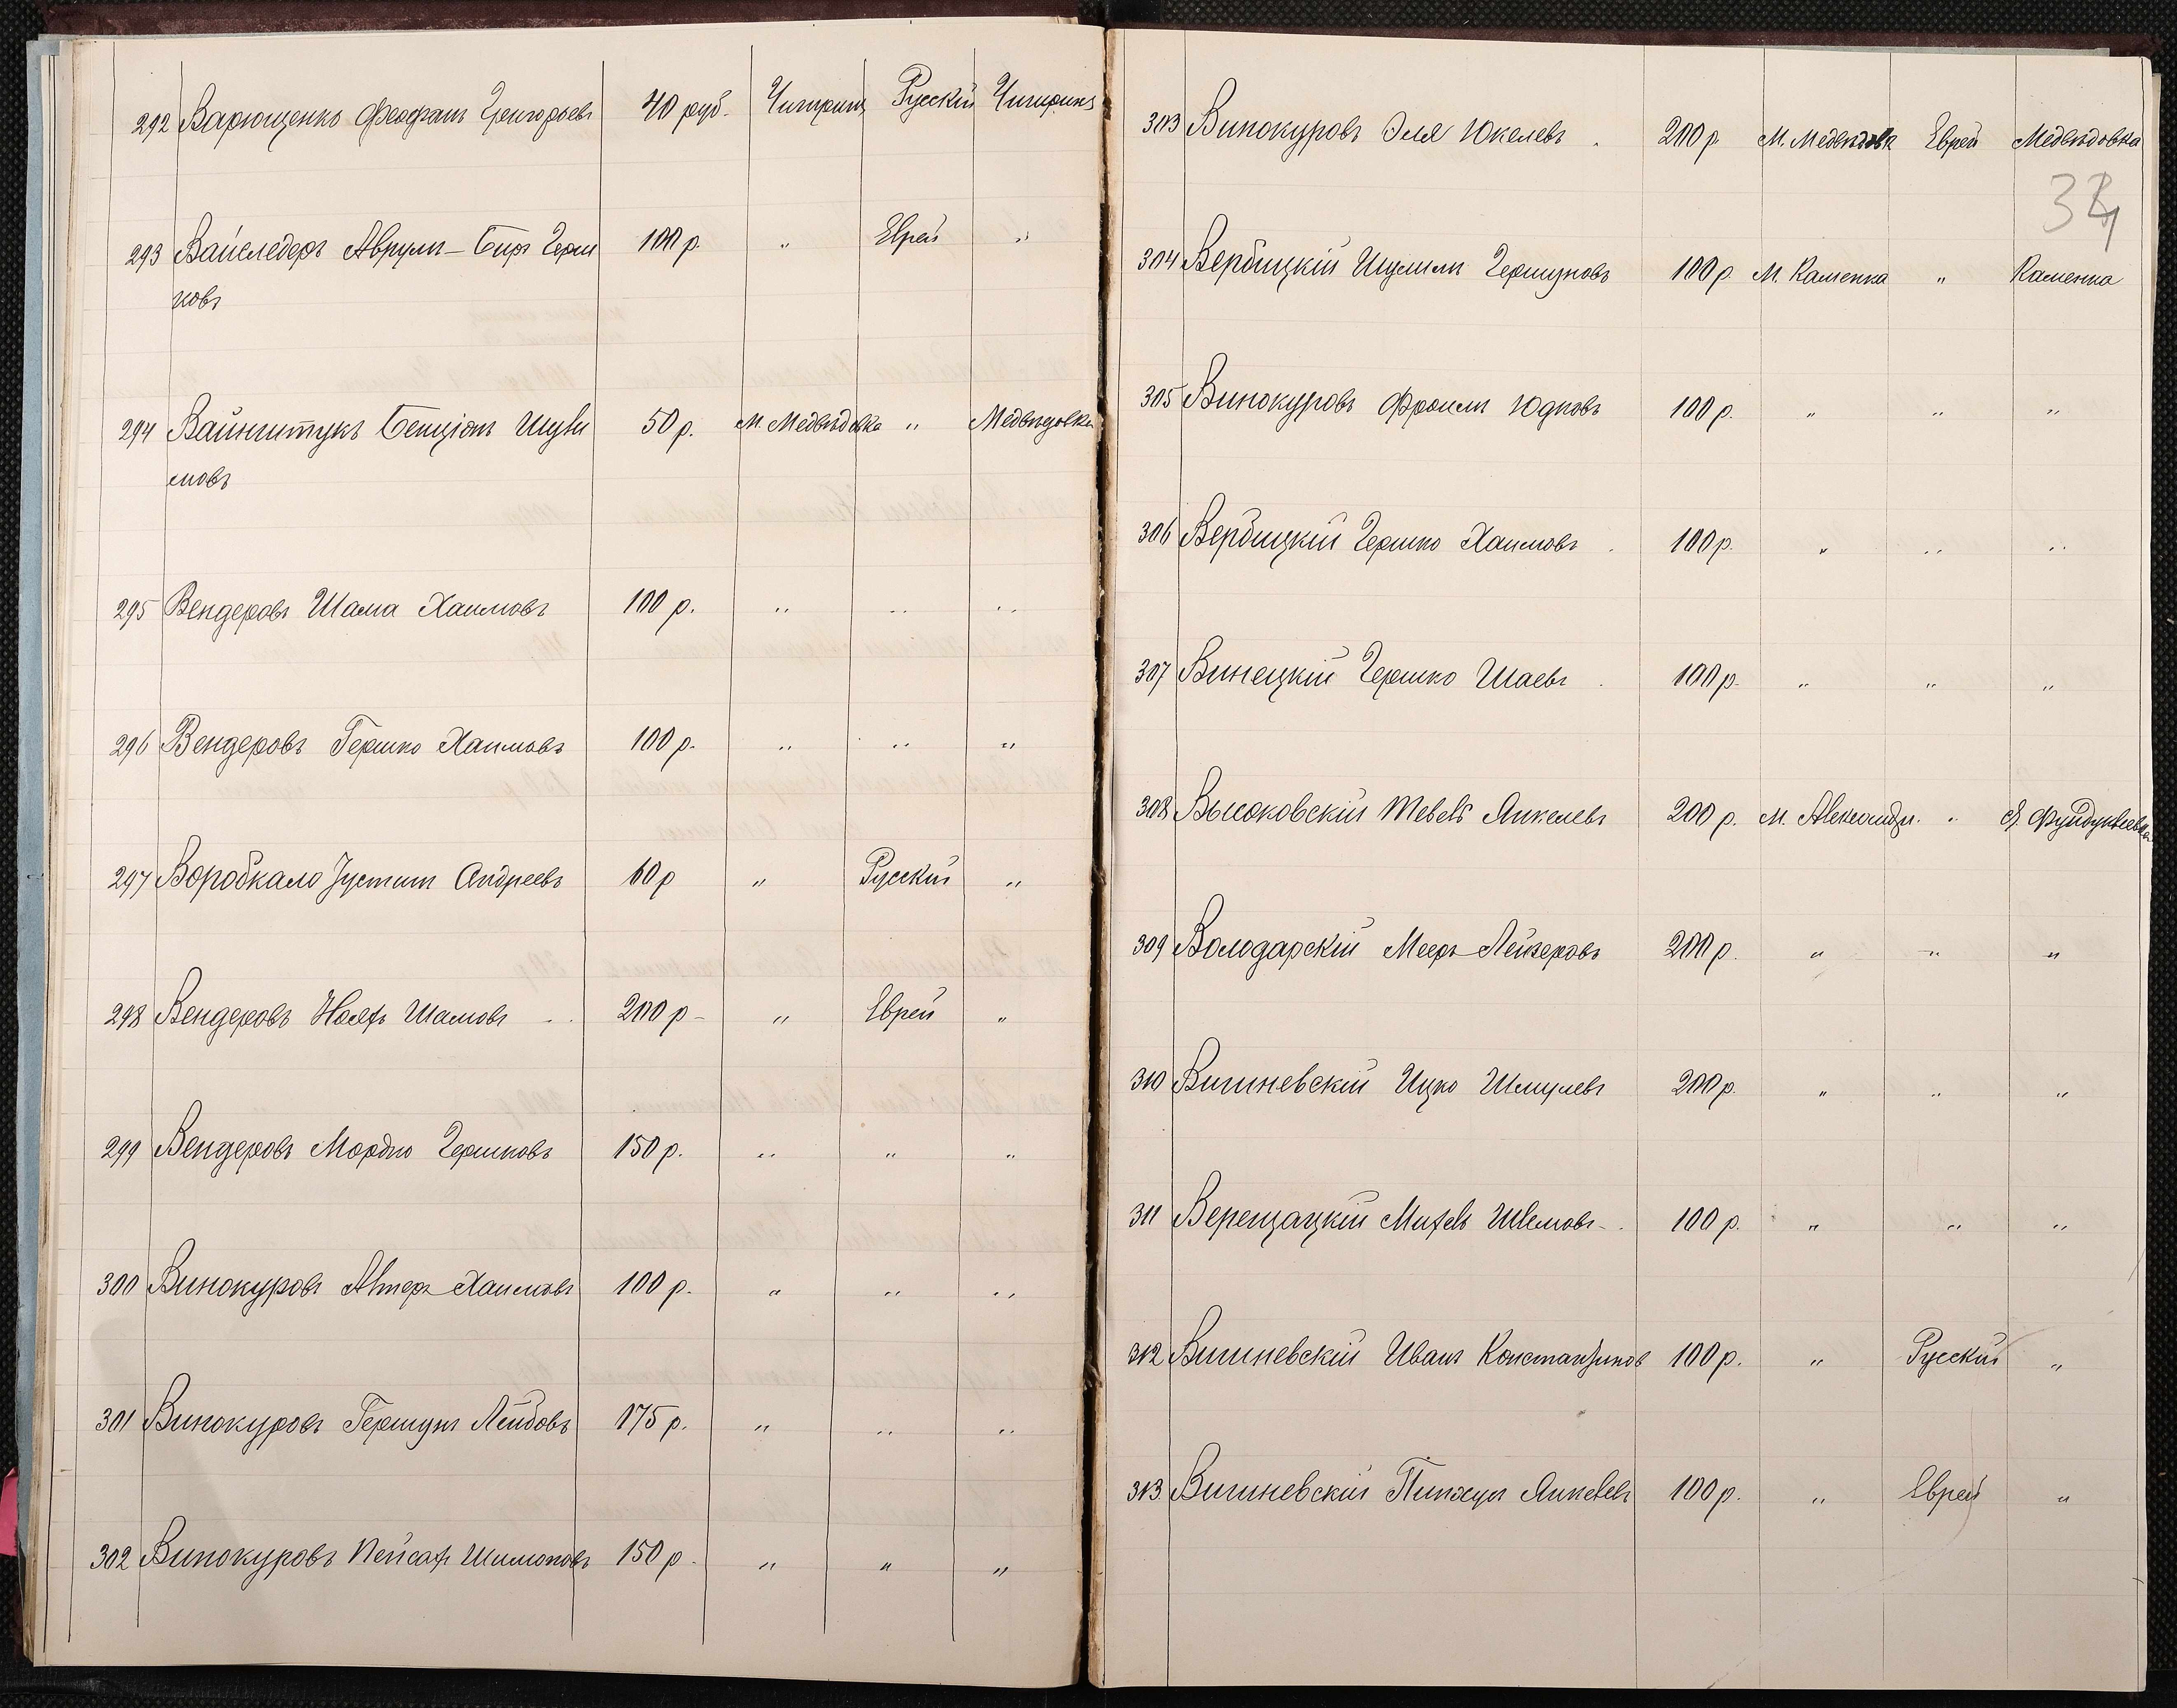 292 Варющенко Феофанъ Григорьевъ 40 руб. Чигиринъ Русскій Чигиринъ
293 Вайследеръ Аврумъ-Беръ Герш 100 р. " Еврей "
ковъ
294 Вайнштукъ Бенціонъ Шули 50 р. М. Медвѣдовка " Медвѣдовка
мовъ
295 Вендеровъ Шама Хаимовъ 100 р. " " "
296 Вендеровъ Гершко Хаимовъ 100 р. " " "
297 Воробкало Іустинъ Андреевъ 60 р " Русскій "
298 Вендеровъ Носехъ Шамовъ 200 р " Еврей "
299 Вендеровъ Мордко Гершковъ 150 р. " " "
300 Винокуровъ Альтеръ Хаимовъ 100 р. " " "
301 Винокуровъ Гершунъ Лейбовъ 175 р. " " "
302 Винокуровъ Пейсахъ Шимоновъ 150 р. " " "
303 Винокуровъ Эля Юкелевъ 200 р. М. Медвѣдовк Еврей Медвѣдовка
304 Вербицкій Шулимъ Гершуновъ 100 р. М. Каменка " Каменка
305 Винокуровъ Фроимъ Юдковъ 100 р. " " "
306 Вербицкій Гершко Хаимовъ 100 р. " " "
307 Винецкій Гершко Шаевъ 100 р. " " "
308 Высоковскій Тевель Янкелевъ 200 р. М. Александр. " Я. Фундуклеевка
309 Володарскій Мееръ Лейзеровъ 200 р. " " "
310 Вишневскій Ицко Шмулевъ 200 р. " " "
311 Верещацкій Михель Шлемовъ 100 р. " " "
312 Вишневскій Иванъ Константинов 100 р. " Русскій "
313 Вишневскій Пинхусъ Янкелев 100 р. " Еврей "